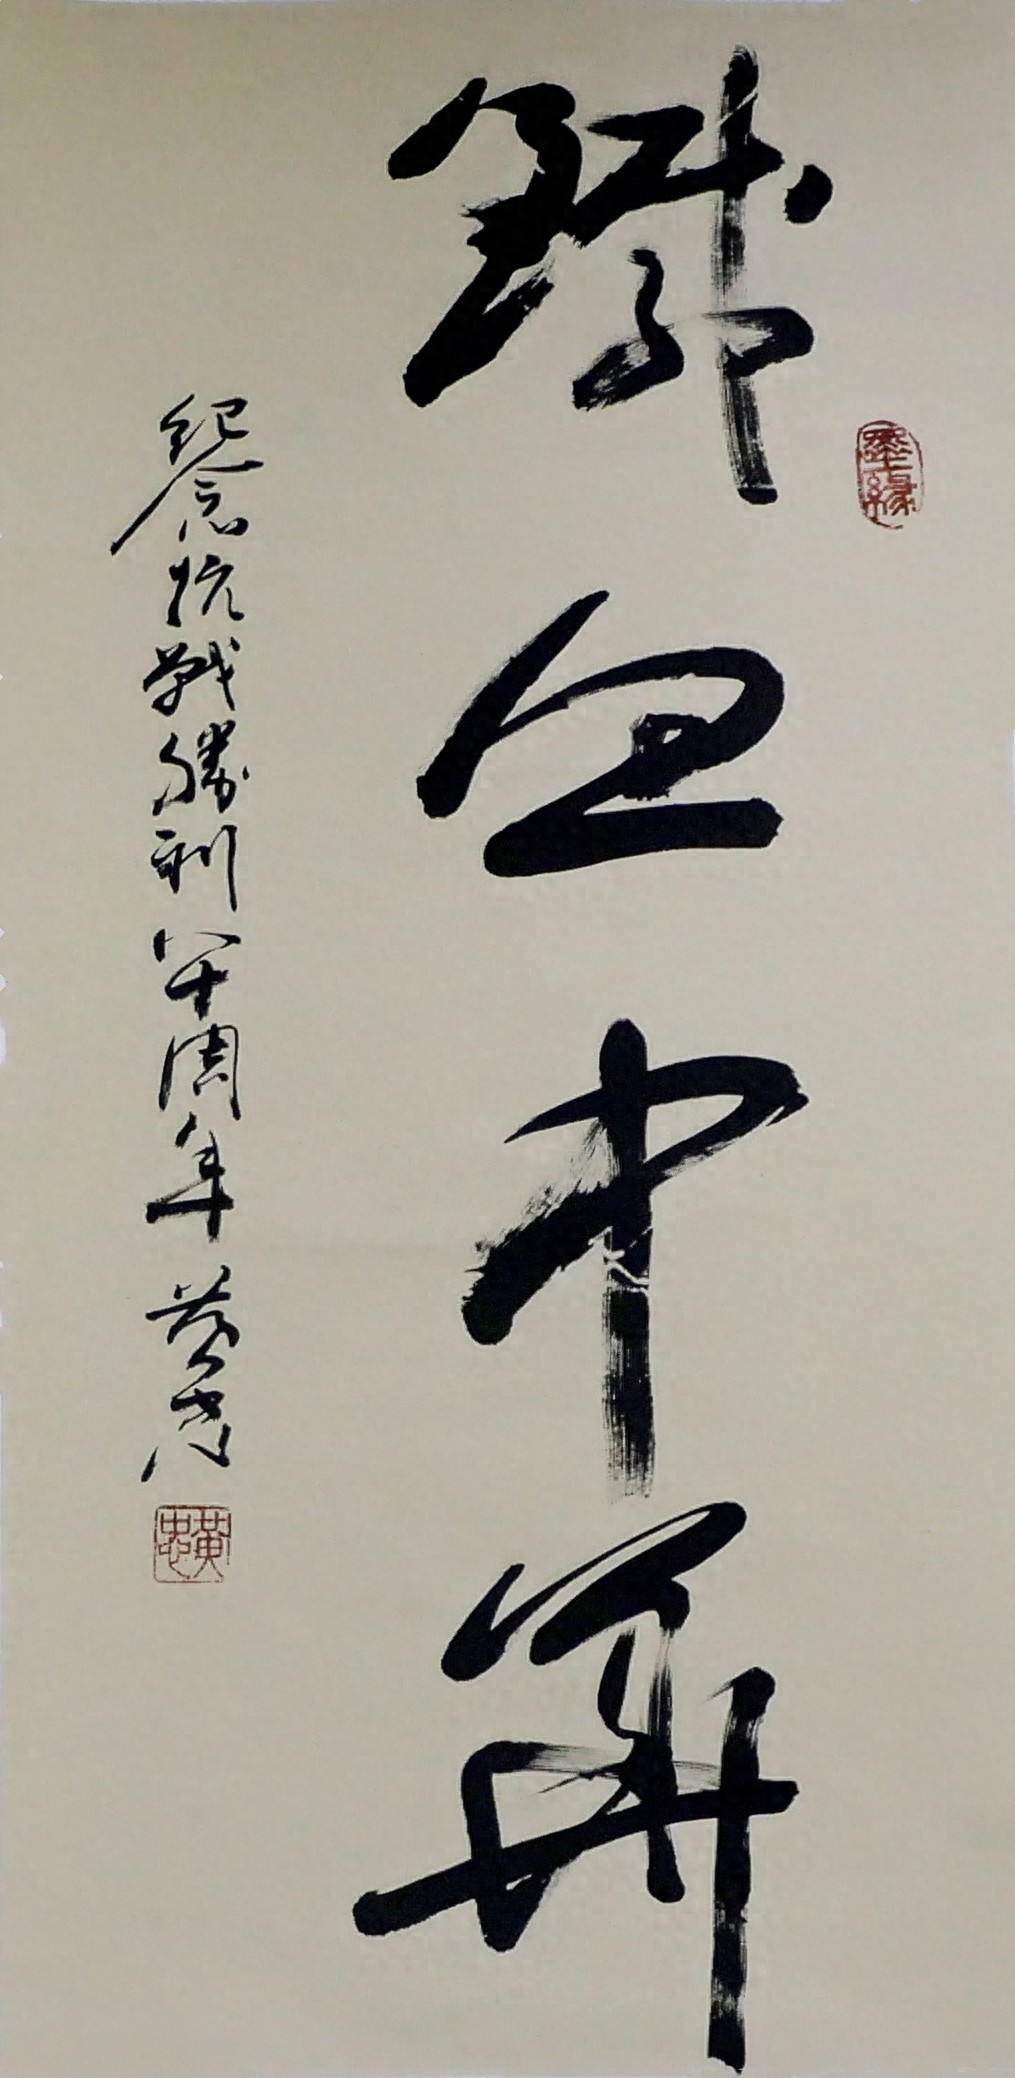 鐵血中華
墨緣
紀念抗戰勝利八十周年 黄忠
黃忠